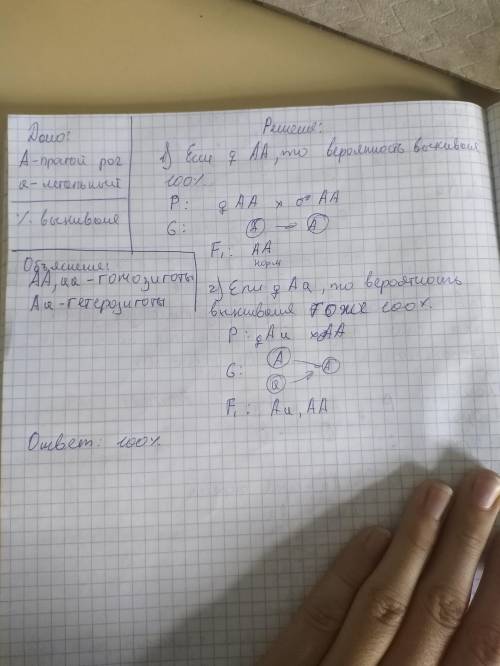 Дано:
А-прямой рог
а-летальный
% выживания
Объяснения:
АА, аа - гомозиготы
Аа - гетерозиготы
Решения:
1) Если ♀ АА, то вероятность выживания
100%.
P: ♀ АА х ♂ АА
G: А А
F₁: АА
норм
2) Если ♀ Аа, то вероятность
выживания тоже 100%.
P: ♀ Аа х ♂ АА
G: А А
а
F₁: Аа, АА
Ответ: 100%